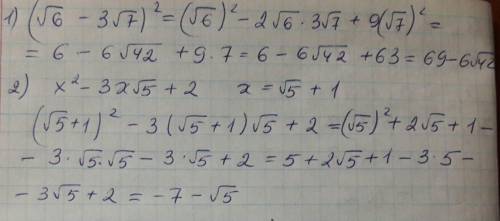 1) (√6 - 3√7)² = (√6)² - 2√6 · 3√7 + 9(√7)² =
= 6 - 6√42 + 9 · 7 = 6 - 6√42 + 63 = 69 - 6√42
2) x² - 3x√5 + 2 x = √5 + 1
(√5+1)² - 3(√5+1)√5 + 2 = (√5)² + 2√5 + 1 -
- 3 · √5 · √5 - 3 · √5 + 2 = 5 + 2√5 + 1 - 3 · 5 -
- 3√5 + 2 = -7 - √5